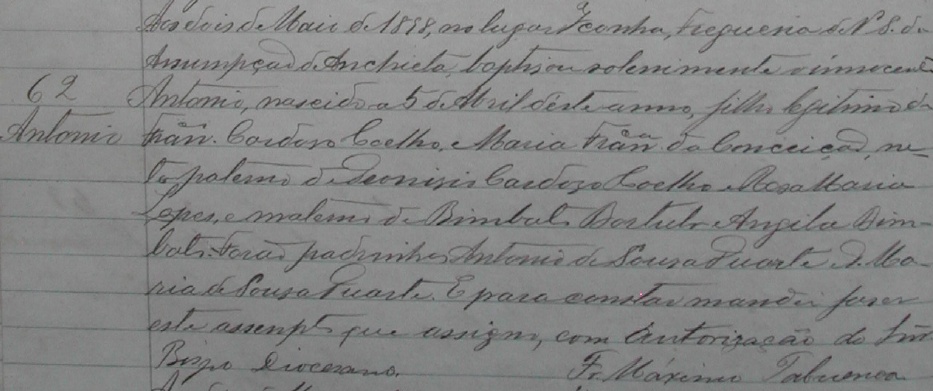 Aos dois de Maio de 1898, no lugar Iconha, Freguesia de N. S. da
Assumpção de Anchieta, baptisou solenimente o innocente
62
Antonio, nascido a 5 de Abril deste anno, filho legitimo de
Antonio
Fran.co Cardozo Coelho e Maria Fran.ca da Conceição, ne-
to paterno de Deonisis Cardozo Coelho e Rosa Maria
Lopes, e materno de Bimbati Bortulo e Angila Bim-
bati. Forão padrinhos Antonio de Souza Duarte e D. Ma-
ria de Souza Duarte. E para constar mandei fazer
este assenpto que assigno, com autorização do
Bispo Diocesano. Fr. Máximo Tabuenca